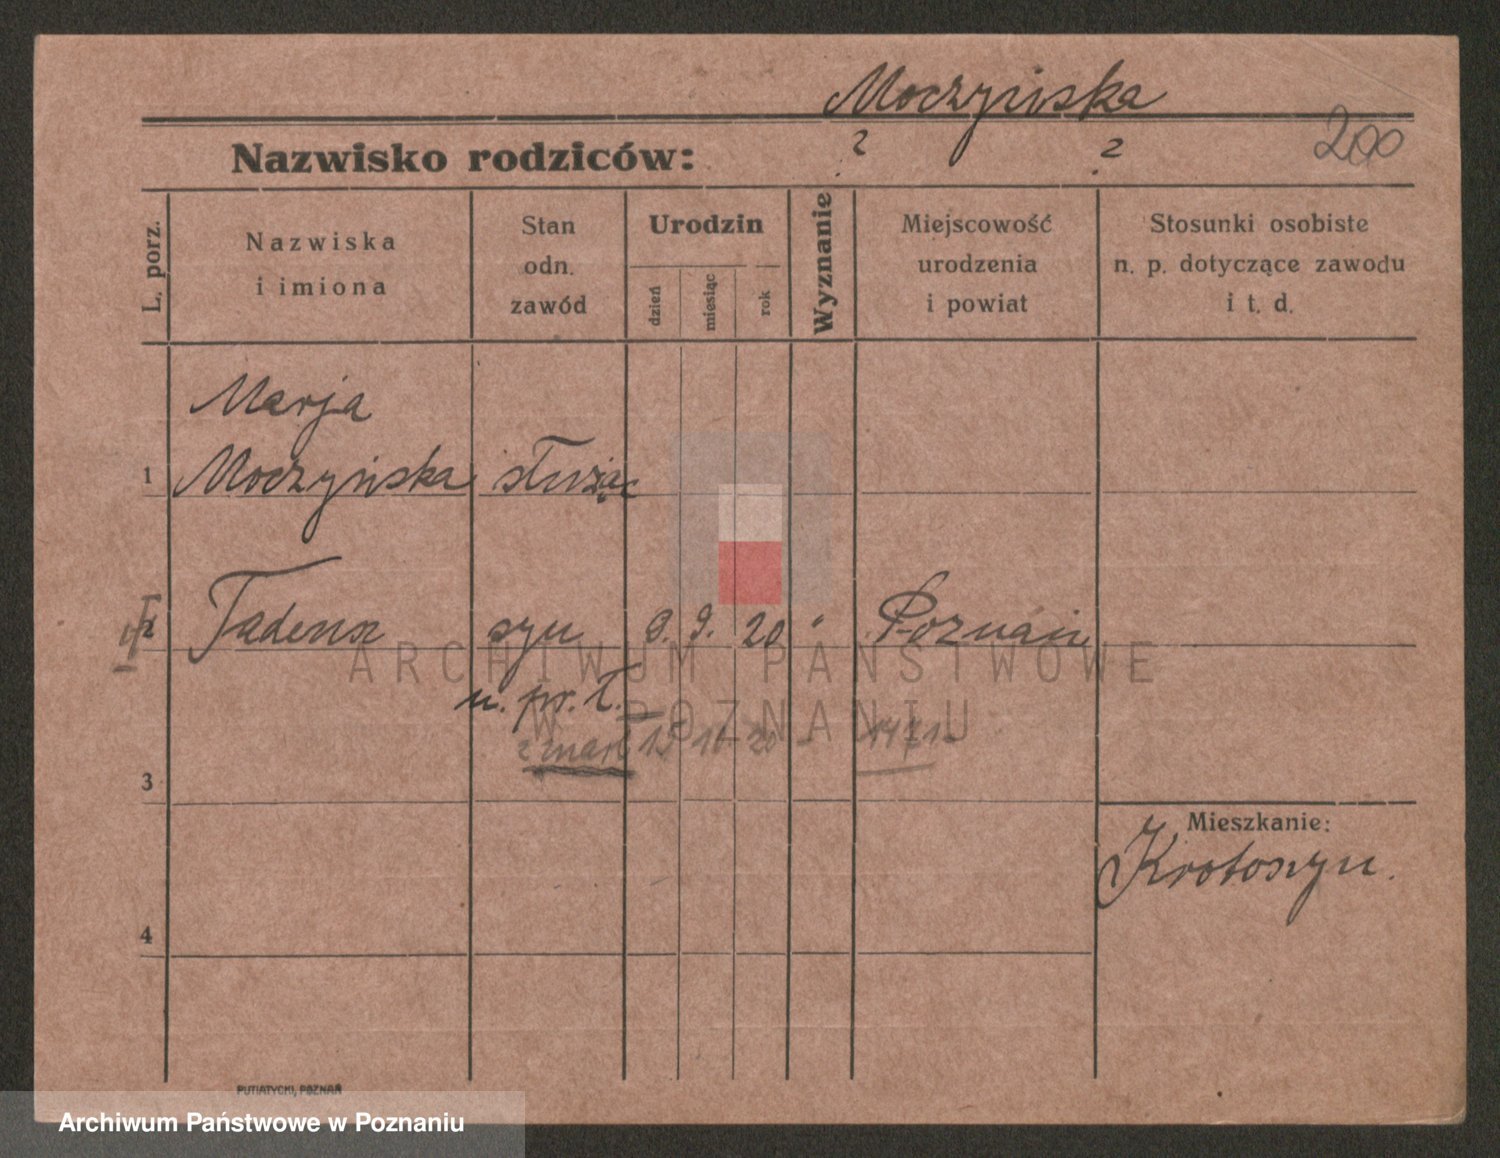 Moczyńska
200
Nazwisko rodziców: ? ?
L. porz.
Nazwiska
i imiona
Stan
odn.
zawód
Urodzin
dzień
miesiąc
rok
Wyznanie
Miejscowość
urodzenia
i powiat
Stosunki osobiste
n. p. dotyczące zawodu
i t. d.
Marja
1 Moczyńska służąc
2 Tadeusz syn 9. 20 " Poznań
ARCHIWUM PAŃSTWOWE
n. pr. Ł.
W POZNANIU
zmarł
3
Mieszkanie:
Krotoszyn.
4
PUTIATYCKI, POZNAŃ
Archiwum Państwowe w Poznaniu